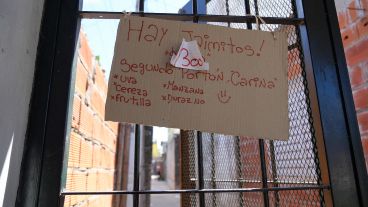 Hay Jaimitos!
300
Segundo Portón "Carina"
*Uva *Manzana
*Cereza *Durazno
*Frutilla